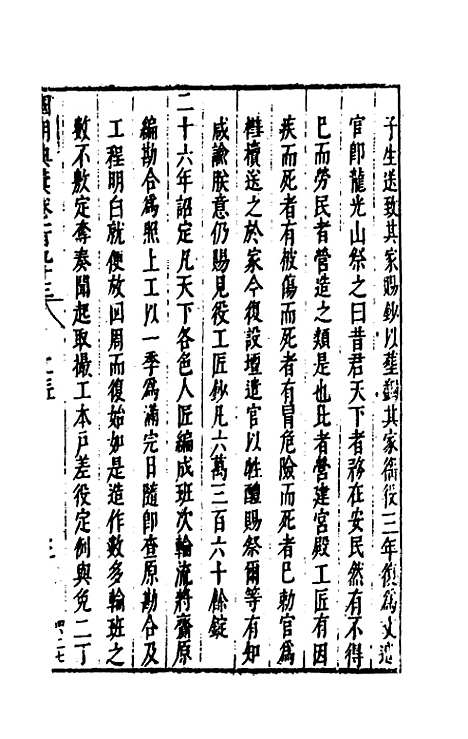 子生送致其家賜鈔以塟蠲其家徭役三年復爲文遣
官卽龍光山祭之曰昔君天下者務在安民然有不得
已而勞民者營造之類是也比者營建宮殿工匠有因
疾而死者有被傷而死者有冒危險而死者已勅官爲
槥櫝送之於家今復設壇遣官以牲醴賜祭爾等有知
咸諭朕意仍賜見役工匠鈔凡六萬三百六十餘錠
二十六年詔定凡天下各色人匠編成班次輪流將齎原
編勘合爲照上工以一季爲滿完日隨卽查原勘合及
工程明白就便放回周而復始如是造作數多輪班之
數不敷定奪奏聞起取撮工本戶差役定例與免二丁
國朝典彙卷一百九十三 工部 三